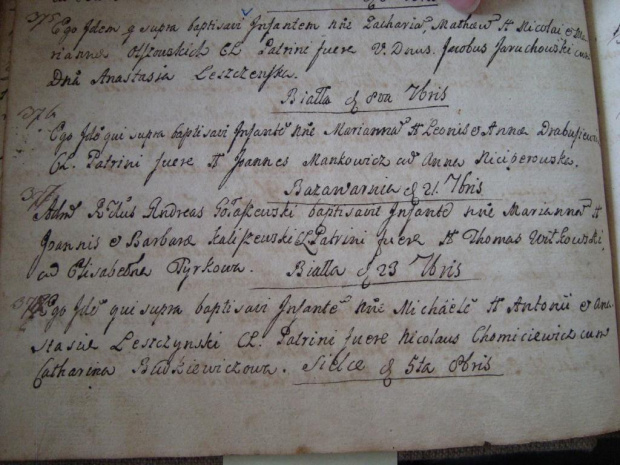 375
Ego Idem q supra baptisavi Infantem nne Zacharia, Mathaw H Nicolai et Ma
rianna Olszowskich CL. Patrini fuere V. Dnus. Jacobus Jaruchowski cum
Dna Anastasia Leszczenska.
Bialla d 8va 7bris
376
Ego Ide qui supra baptisavi Infante nne Marianna H Leonis et Anna
CL. Patrini fuere H Joannes Mankowicz cu Anna Niciperowska.
Bazawarnia d 21. 7bris
377
Andreas Gołaszewski baptisavit Infante nne Marianna H
Joannis et Barbara Kaliszewski CL Patrini fuere H Thomas Witkowski
cu Elisabetha Tyrkowa. Bialla d 23 7bris
378
Ego Ide qui supra baptisavi Infante nne Michaele H Antonii et Ana
stasiæ Leszczynski CL. Patrini fuere Nicolaus Chomiciewicz cum
Catharina Budkiewiczowa. Sielce d 5ta 8bris